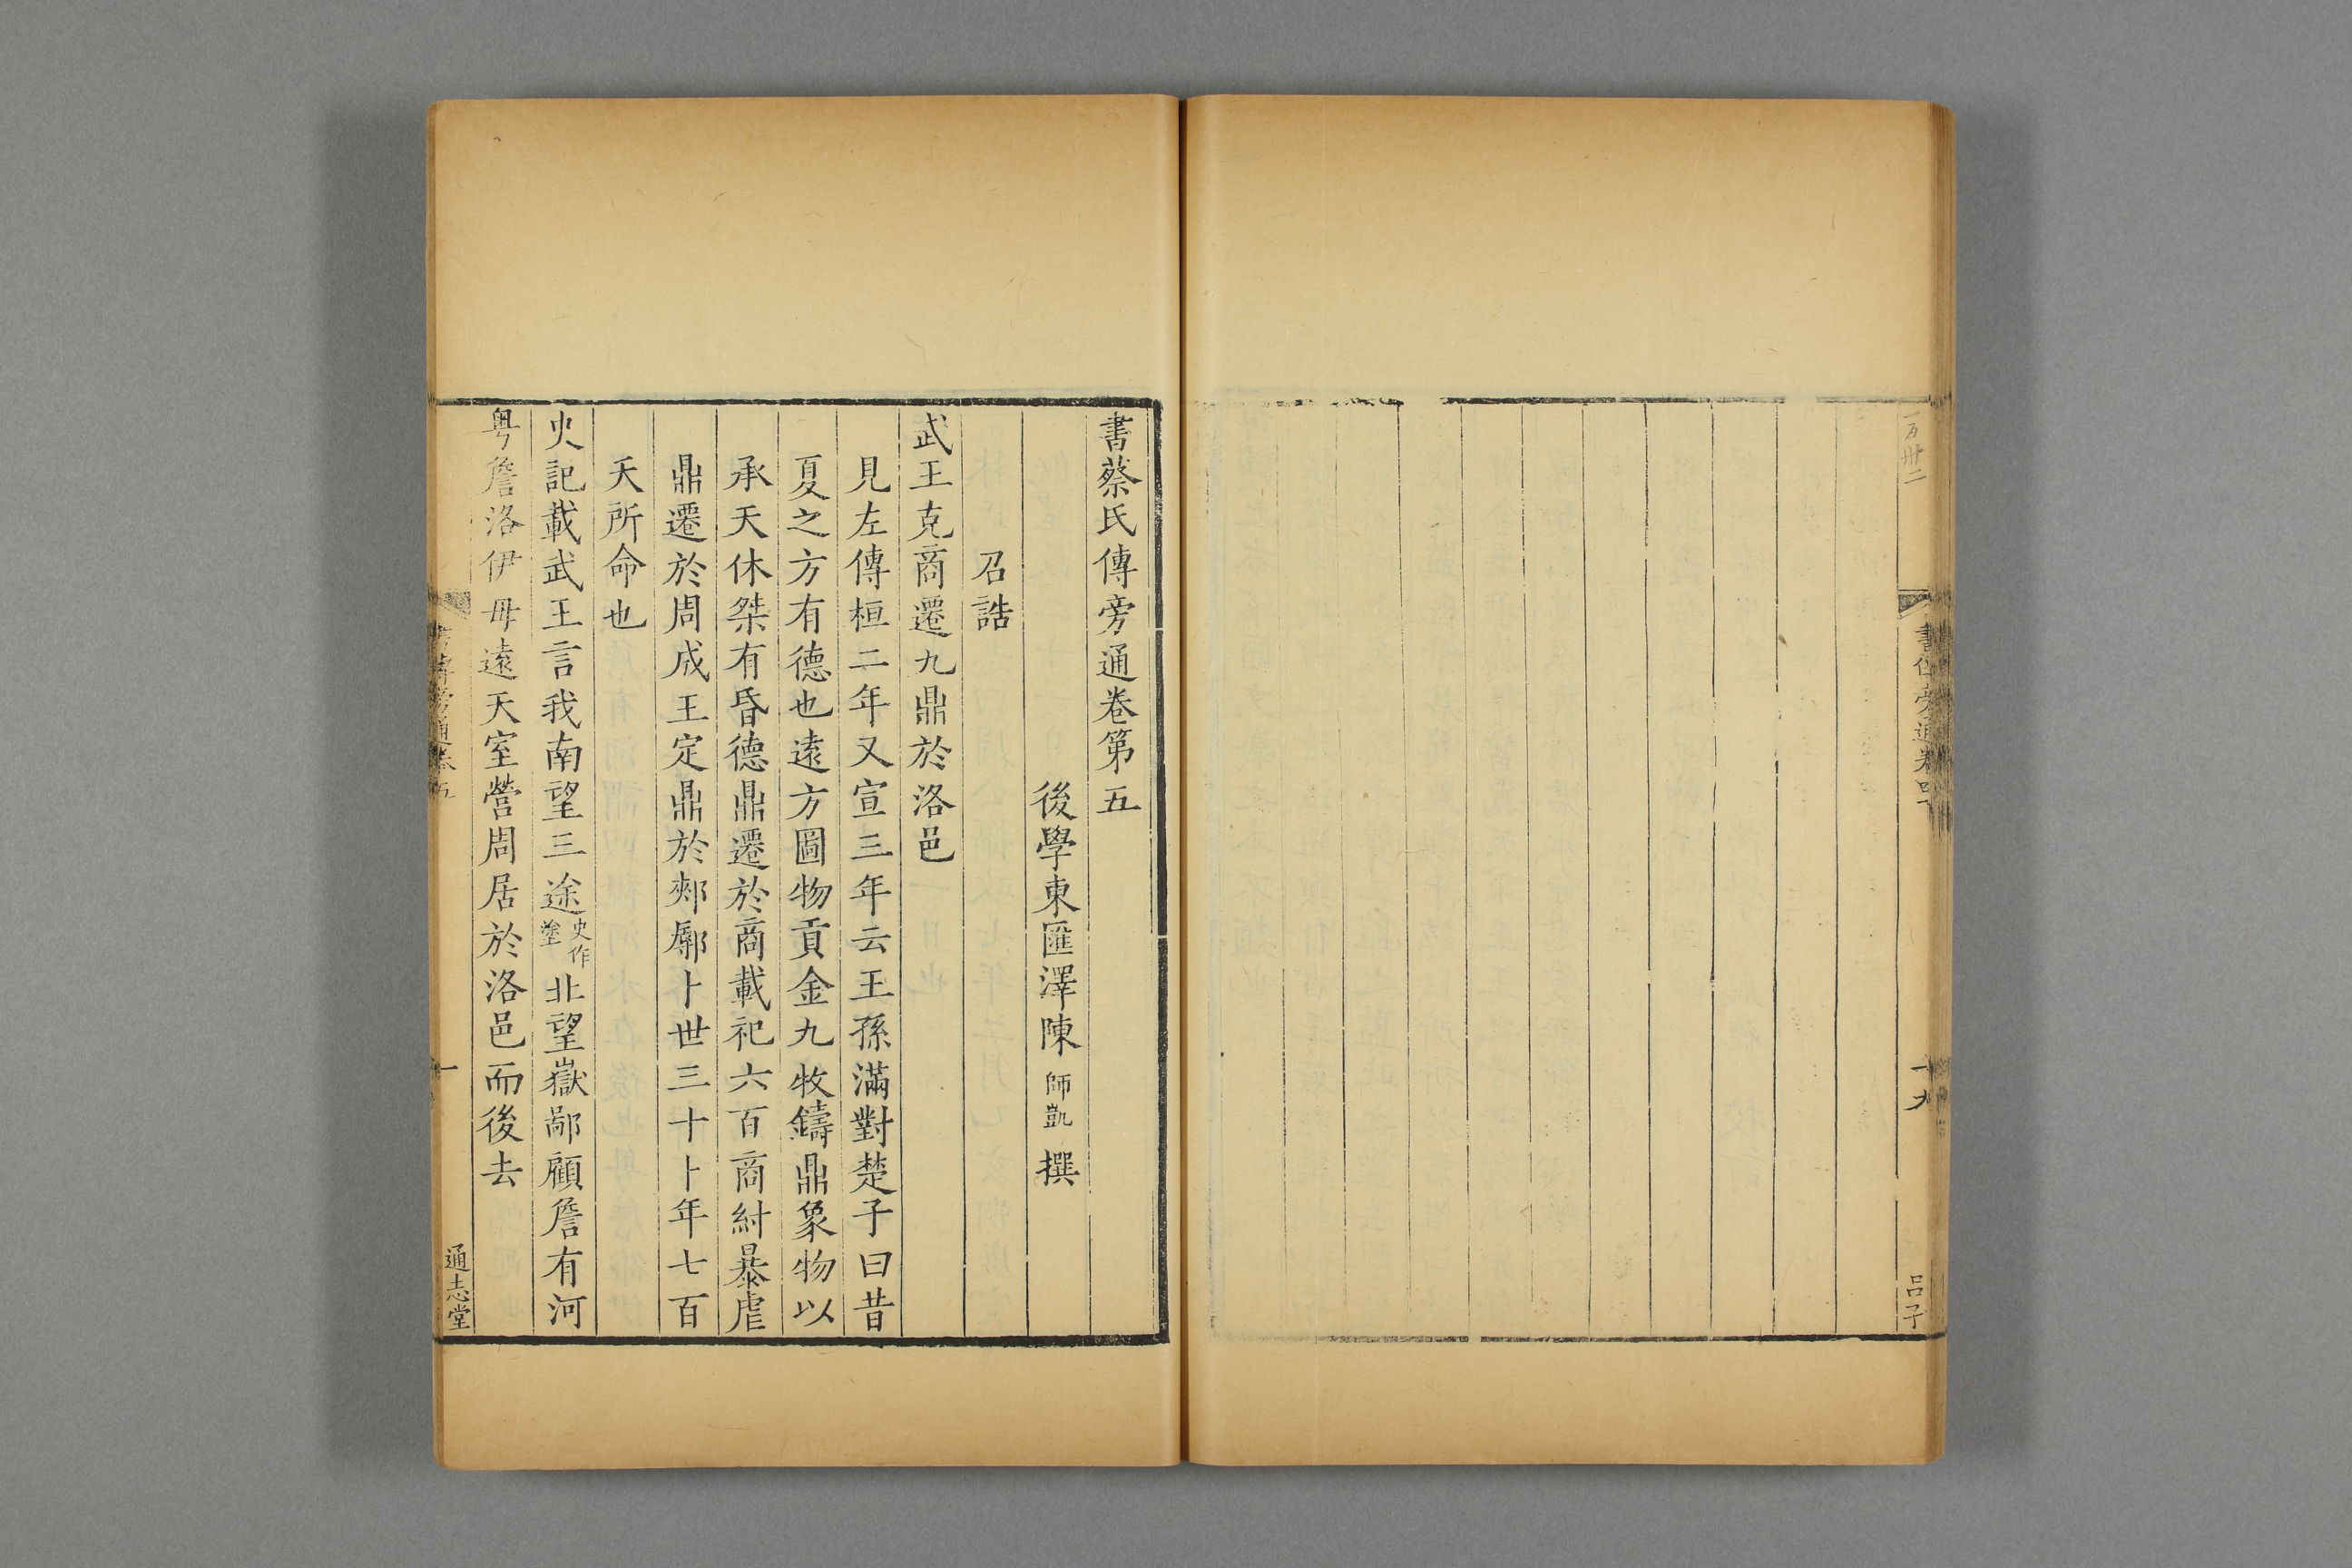 書蔡氏傳旁通卷第五
後學東匯澤陳師凱撰
召誥
武王克商遷九鼎於洛邑
見左傳桓二年又宣三年云王孫滿對楚子曰昔
夏之方有德也遠方圖物貢金九牧鑄鼎象物以
承天休桀有昏德鼎遷於商載祀六百商紂暴虐
鼎遷於周成王定鼎於郟鄏卜世三十卜年七百
天所命也
史記載武王言我南望三途史作塗北望嶽鄙顧詹有河
粤詹洛伊毋遠天室營周居於洛邑而後去
書傳旁通卷五
一
通志堂
書傳旁通卷四下
十九
呂子